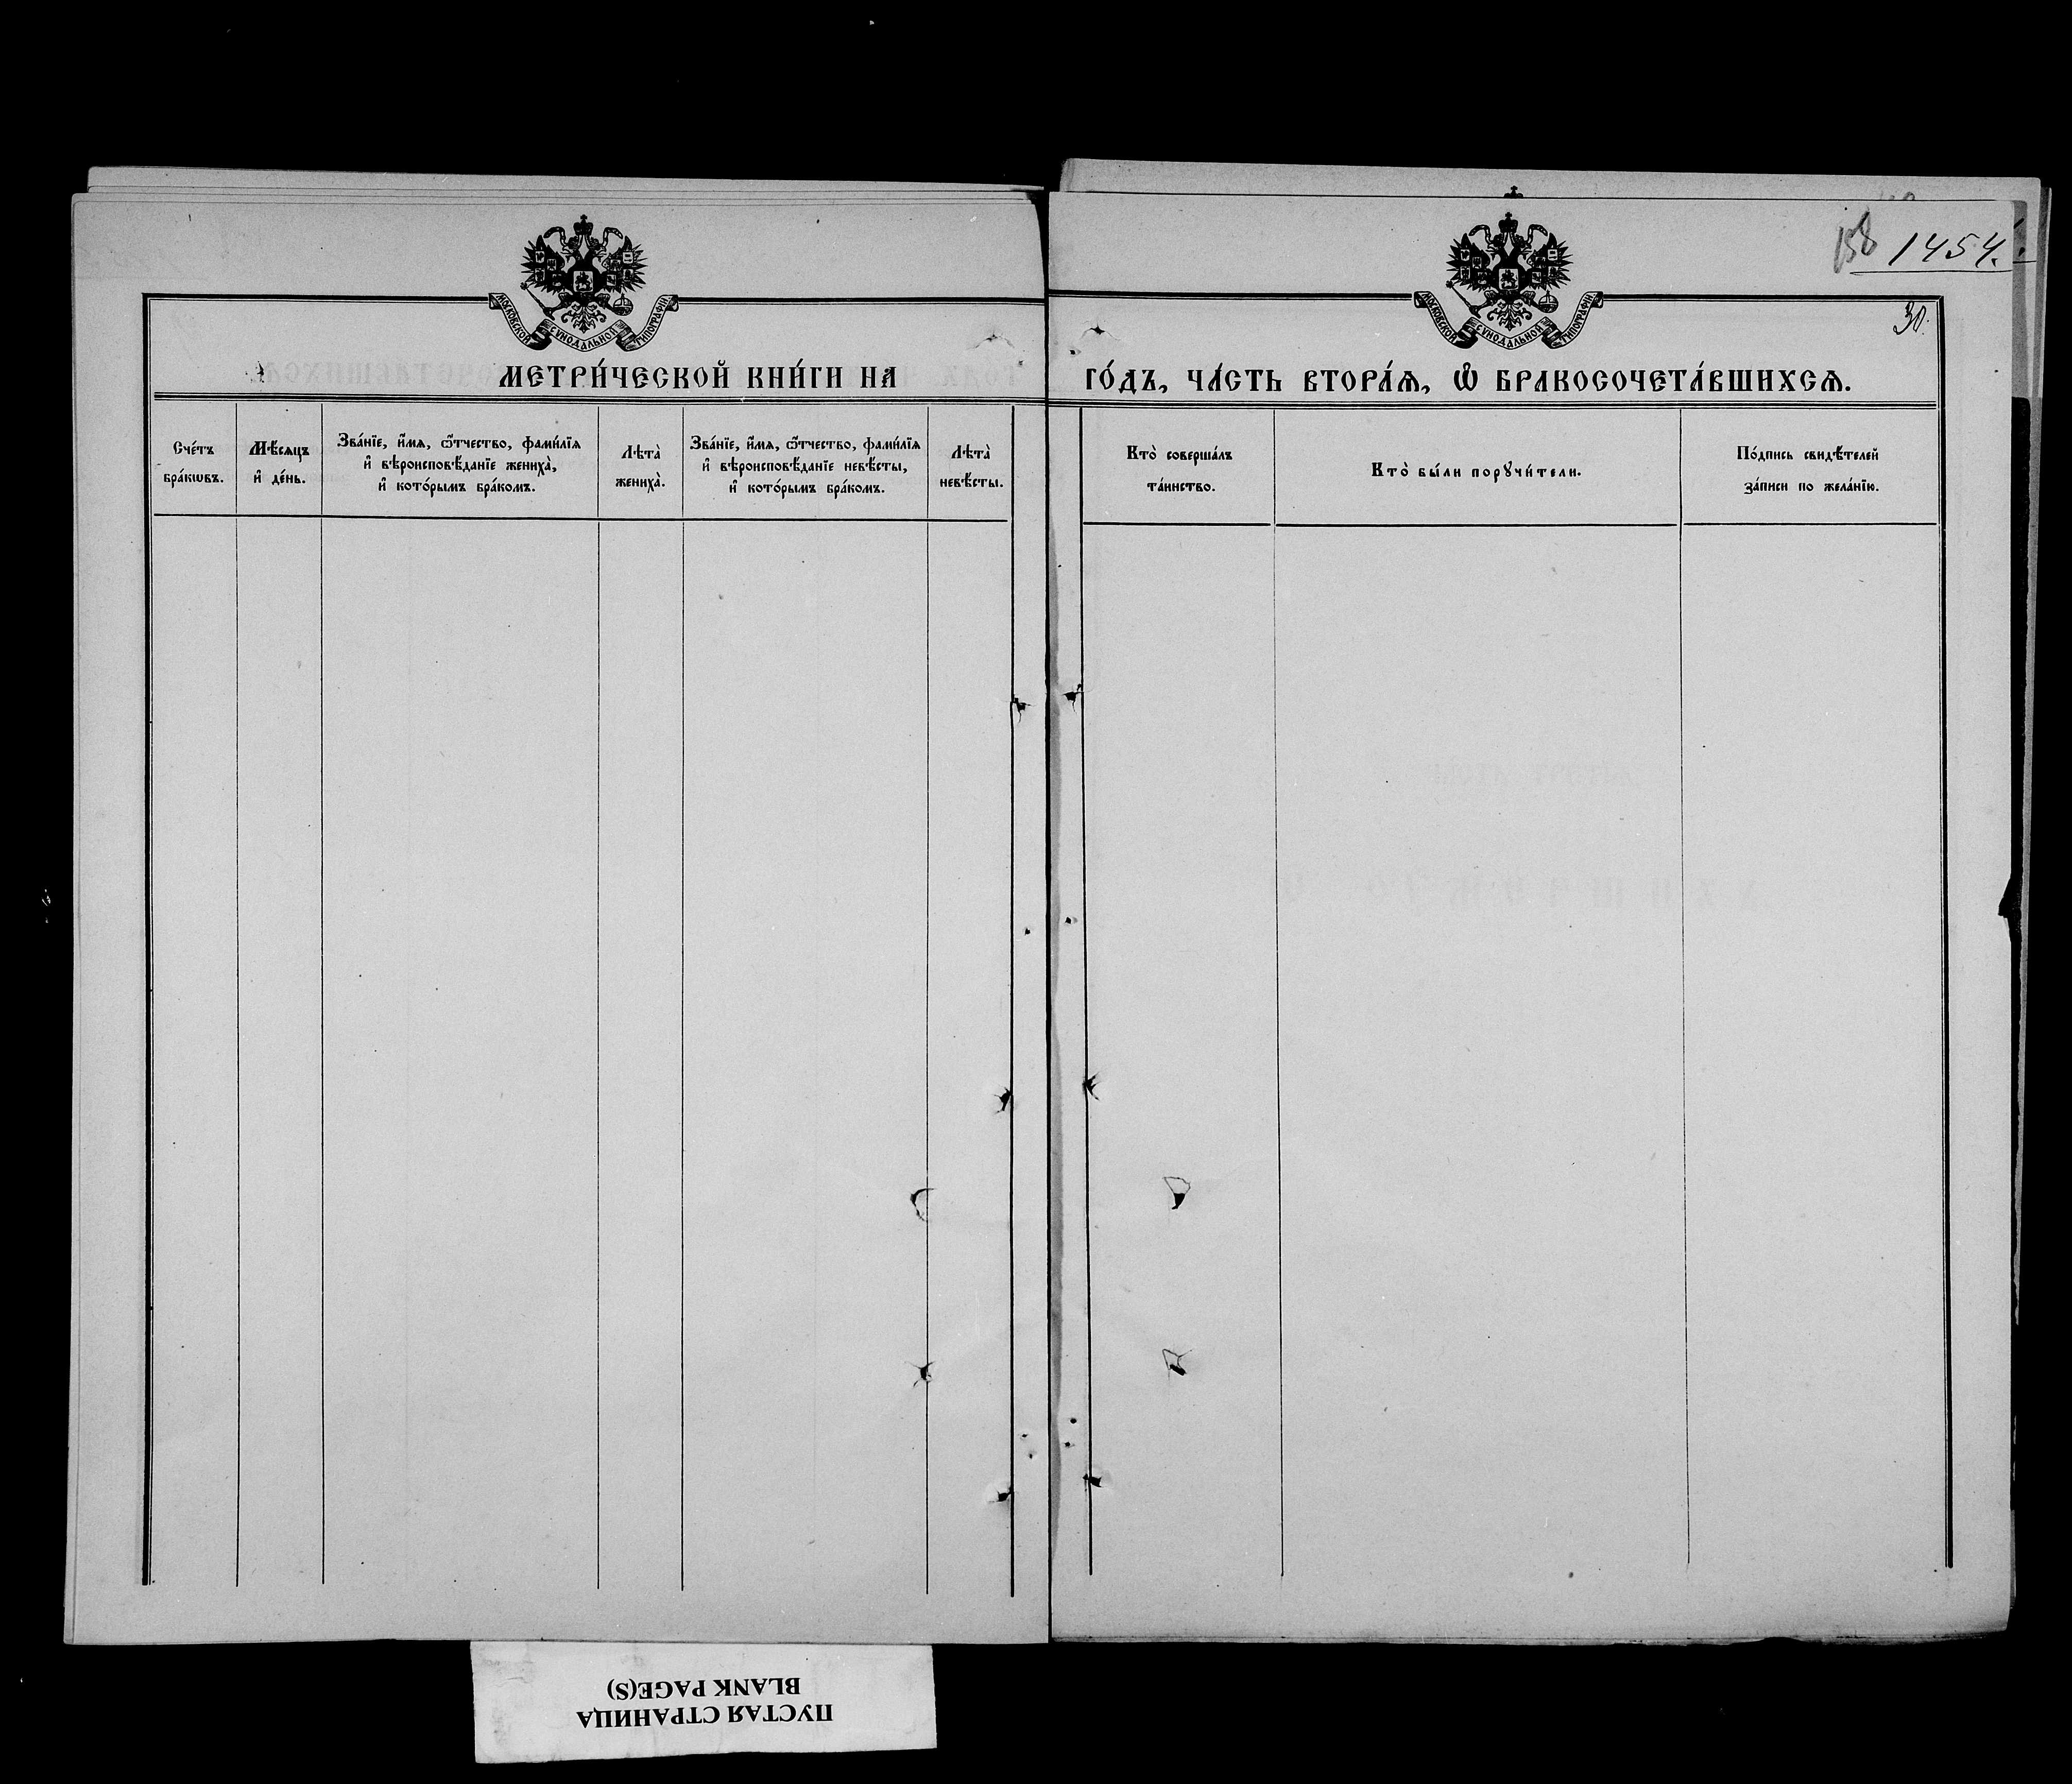 МОСКОВСКОЙ СѴНОДАЛЬНОЙ ТИПОГРАФІИ
МЕТРИ́ЧЕСКОЙ КНИ́ГИ НА
Сче́тъ
бра́кѡвъ.
Мѣ́сѧцъ
и҆ де́нь.
Зва́нїе, и҆́мѧ, ѻ҆́тчество, фами́лїѧ
и҆ вѣроисповѣ́данїе жениха̀,
и҆ кото́рымъ бра́комъ.
Лѣта̀
жениха̀.
Зва́нїе, и҆́мѧ, ѻ҆́тчество, фами́лїѧ
и҆ вѣроисповѣ́данїе невѣ́сты,
и҆ кото́рымъ бра́комъ.
Лѣта̀
невѣ́сты.
158 1454.
МОСКОВСКОЙ СѴНОДАЛЬНОЙ ТИПОГРАФІИ
30.
ГО́ДЪ, ЧА́СТЬ ВТОРА́Ѧ, Ѽ БРАКОСОЧЕТА́ВШИХСѦ.
Кто̀ соверша́лъ
та́инство.
Кто̀ бы́ли порꙋчи́тели.
По́дпись свидѣ́телей
за́писи по жела́нїю.
ПУСТАЯ СТРАНИЦА
BLANK PAGE(S)